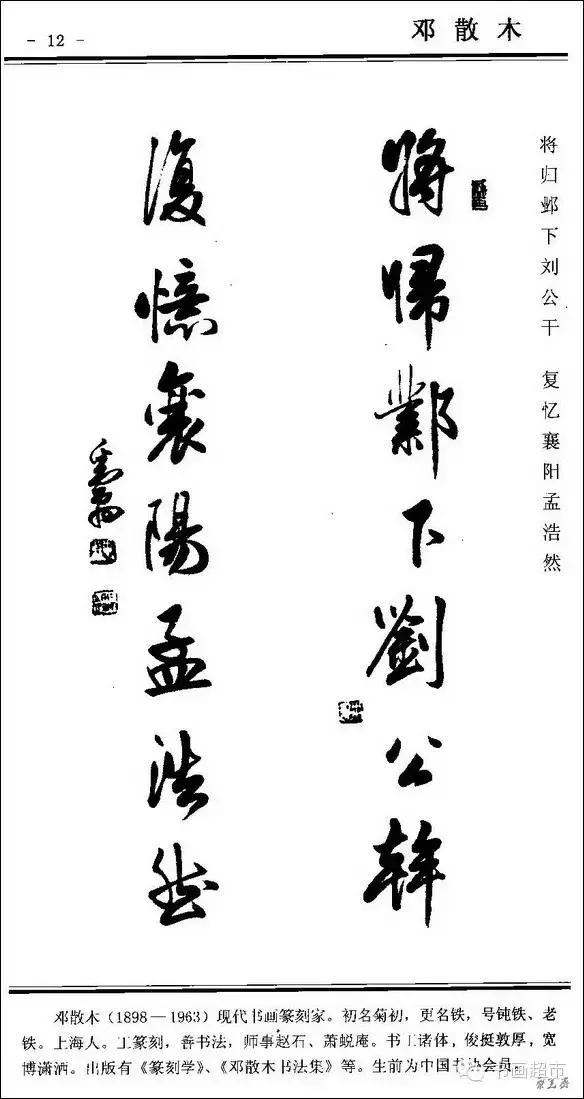 - 12 -
邓散木
将归邺下刘公干 复忆襄阳孟浩然
將歸鄴下劉公幹
復憶襄陽孟浩然
邓散木（1898—1963）现代书画篆刻家。初名菊初，更名铁，号钝铁、老
铁。上海人。工篆刻，善书法，师事赵石、萧蜕庵。书工诸体，俊挺敦厚，宽
博潇洒。出版有《篆刻学》、《邓散木书法集》等。生前为中国书协会员。
书画超市